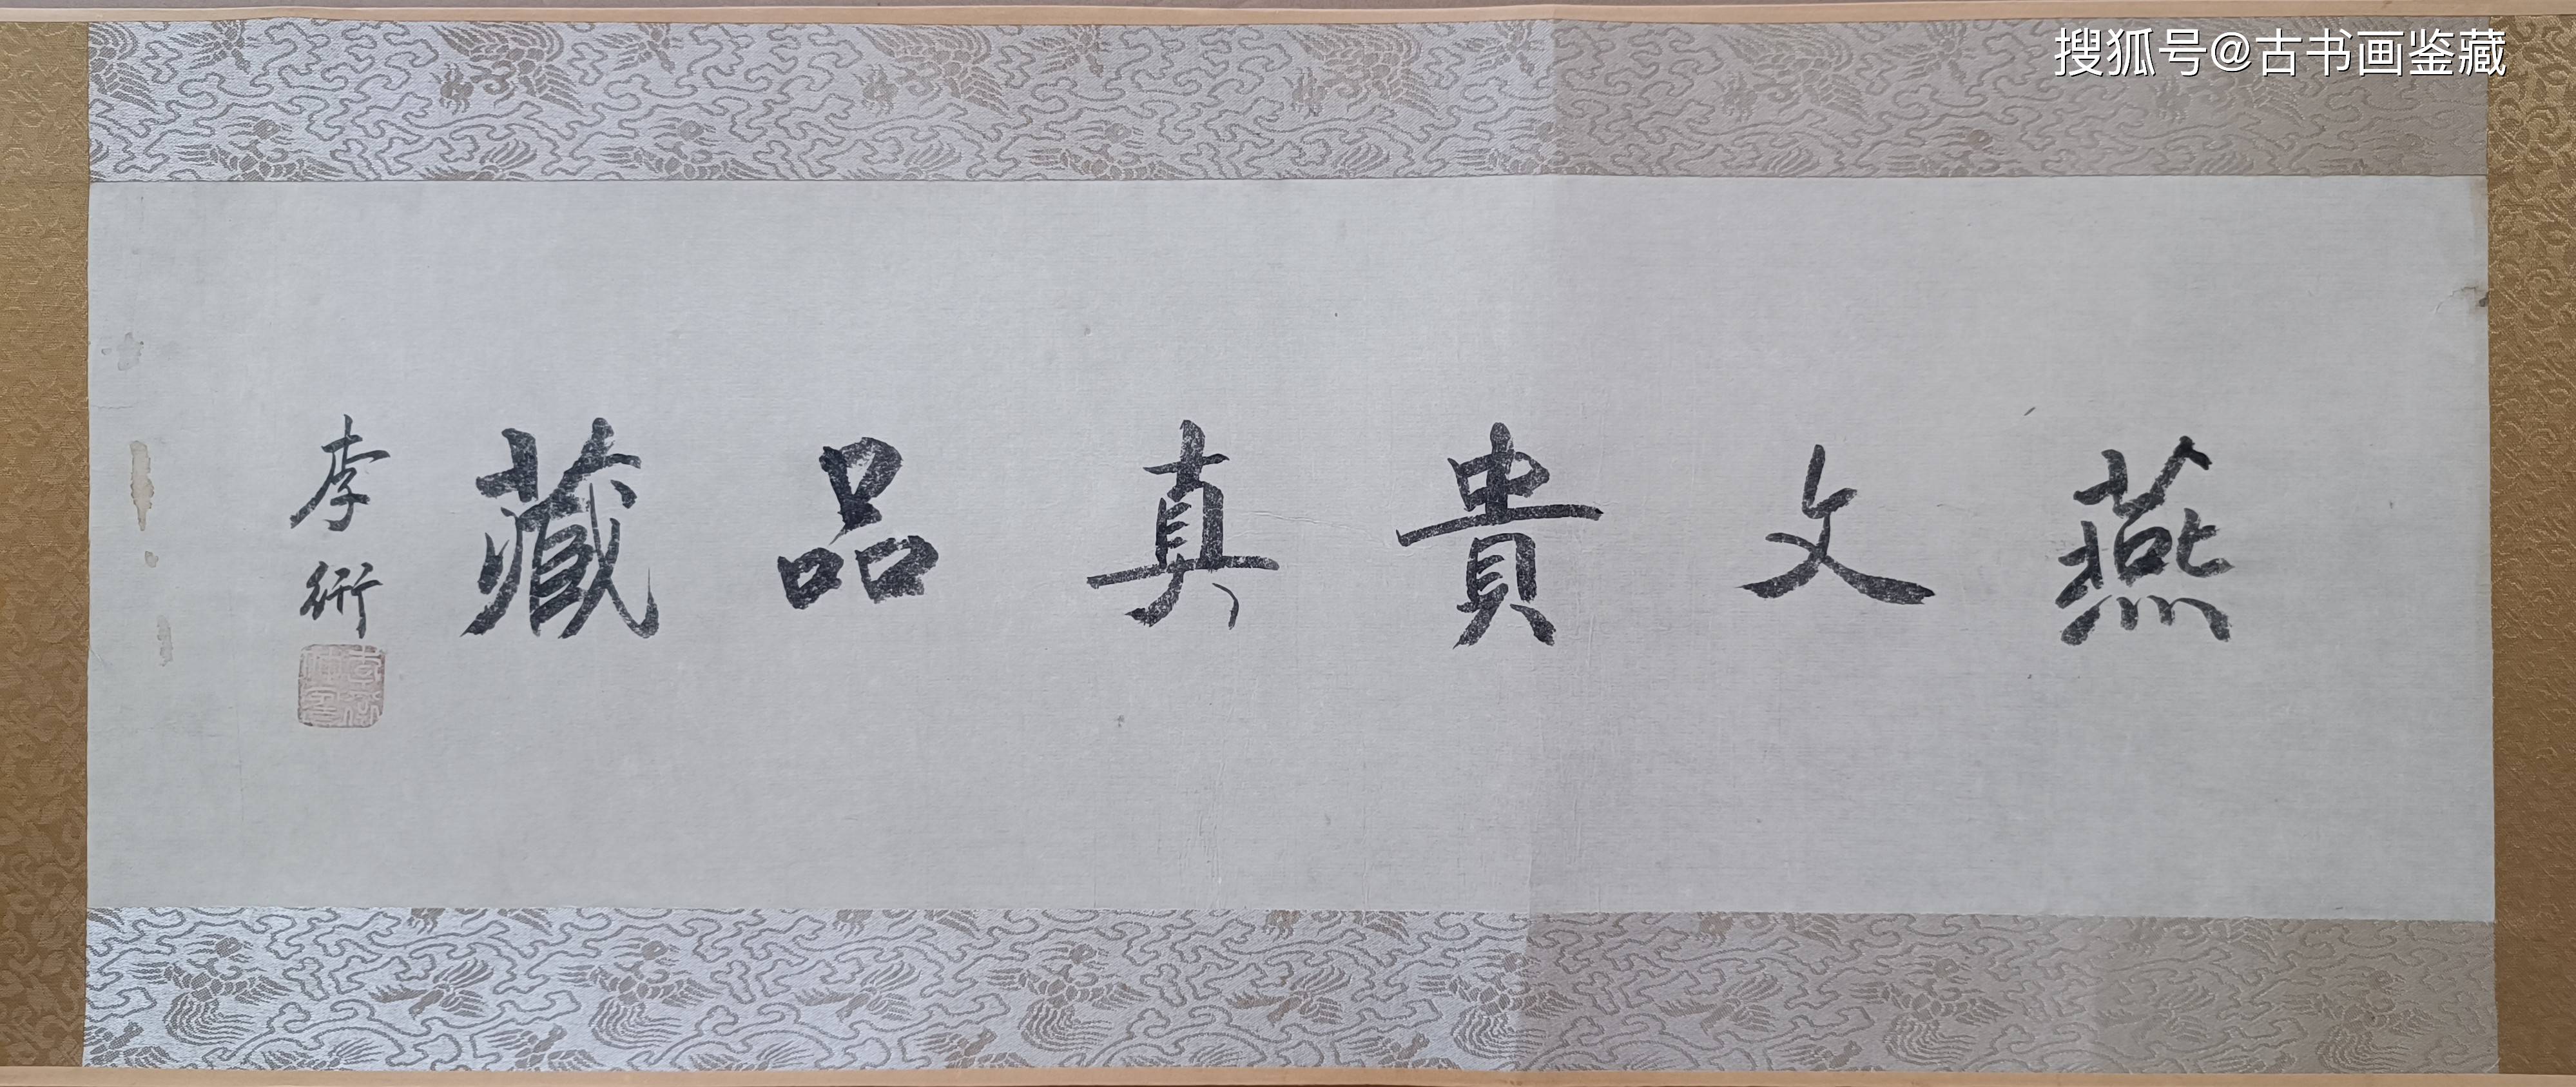 搜狐号@古书画鉴藏
燕文貴真品藏
李衎